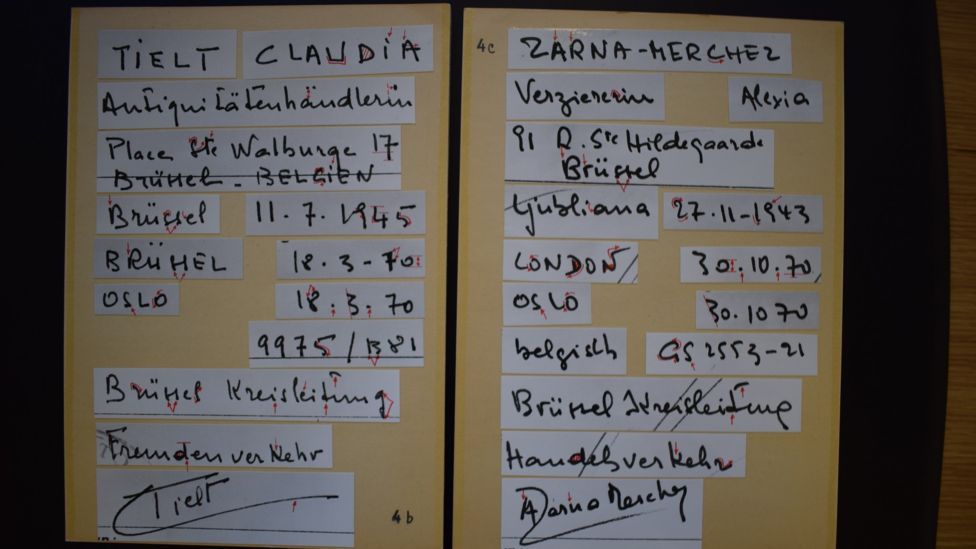 TIELT CLAUDIA
Antiquitätenhändlerin
Place Ste Walburge 17
BRÜSSEL - BELGIEN
Brüssel 11.7.1945
BRÜSSEL 18.3-70
OSLO 18.3.70
9975/B81
Brüssel Kreisleitung
Fremdenverkehr
Tielt
4b
4c
ZARNA-MERCHEZ
Verziererin Alexia
91 R. Ste Hildegaarde
Brüssel
Ljubliana 27.11-1943
LONDON 30.10.70
OSLO 30.10 70
belgisch GS 2553-21
Brüssel Kreisleitung
Handelsverkehr